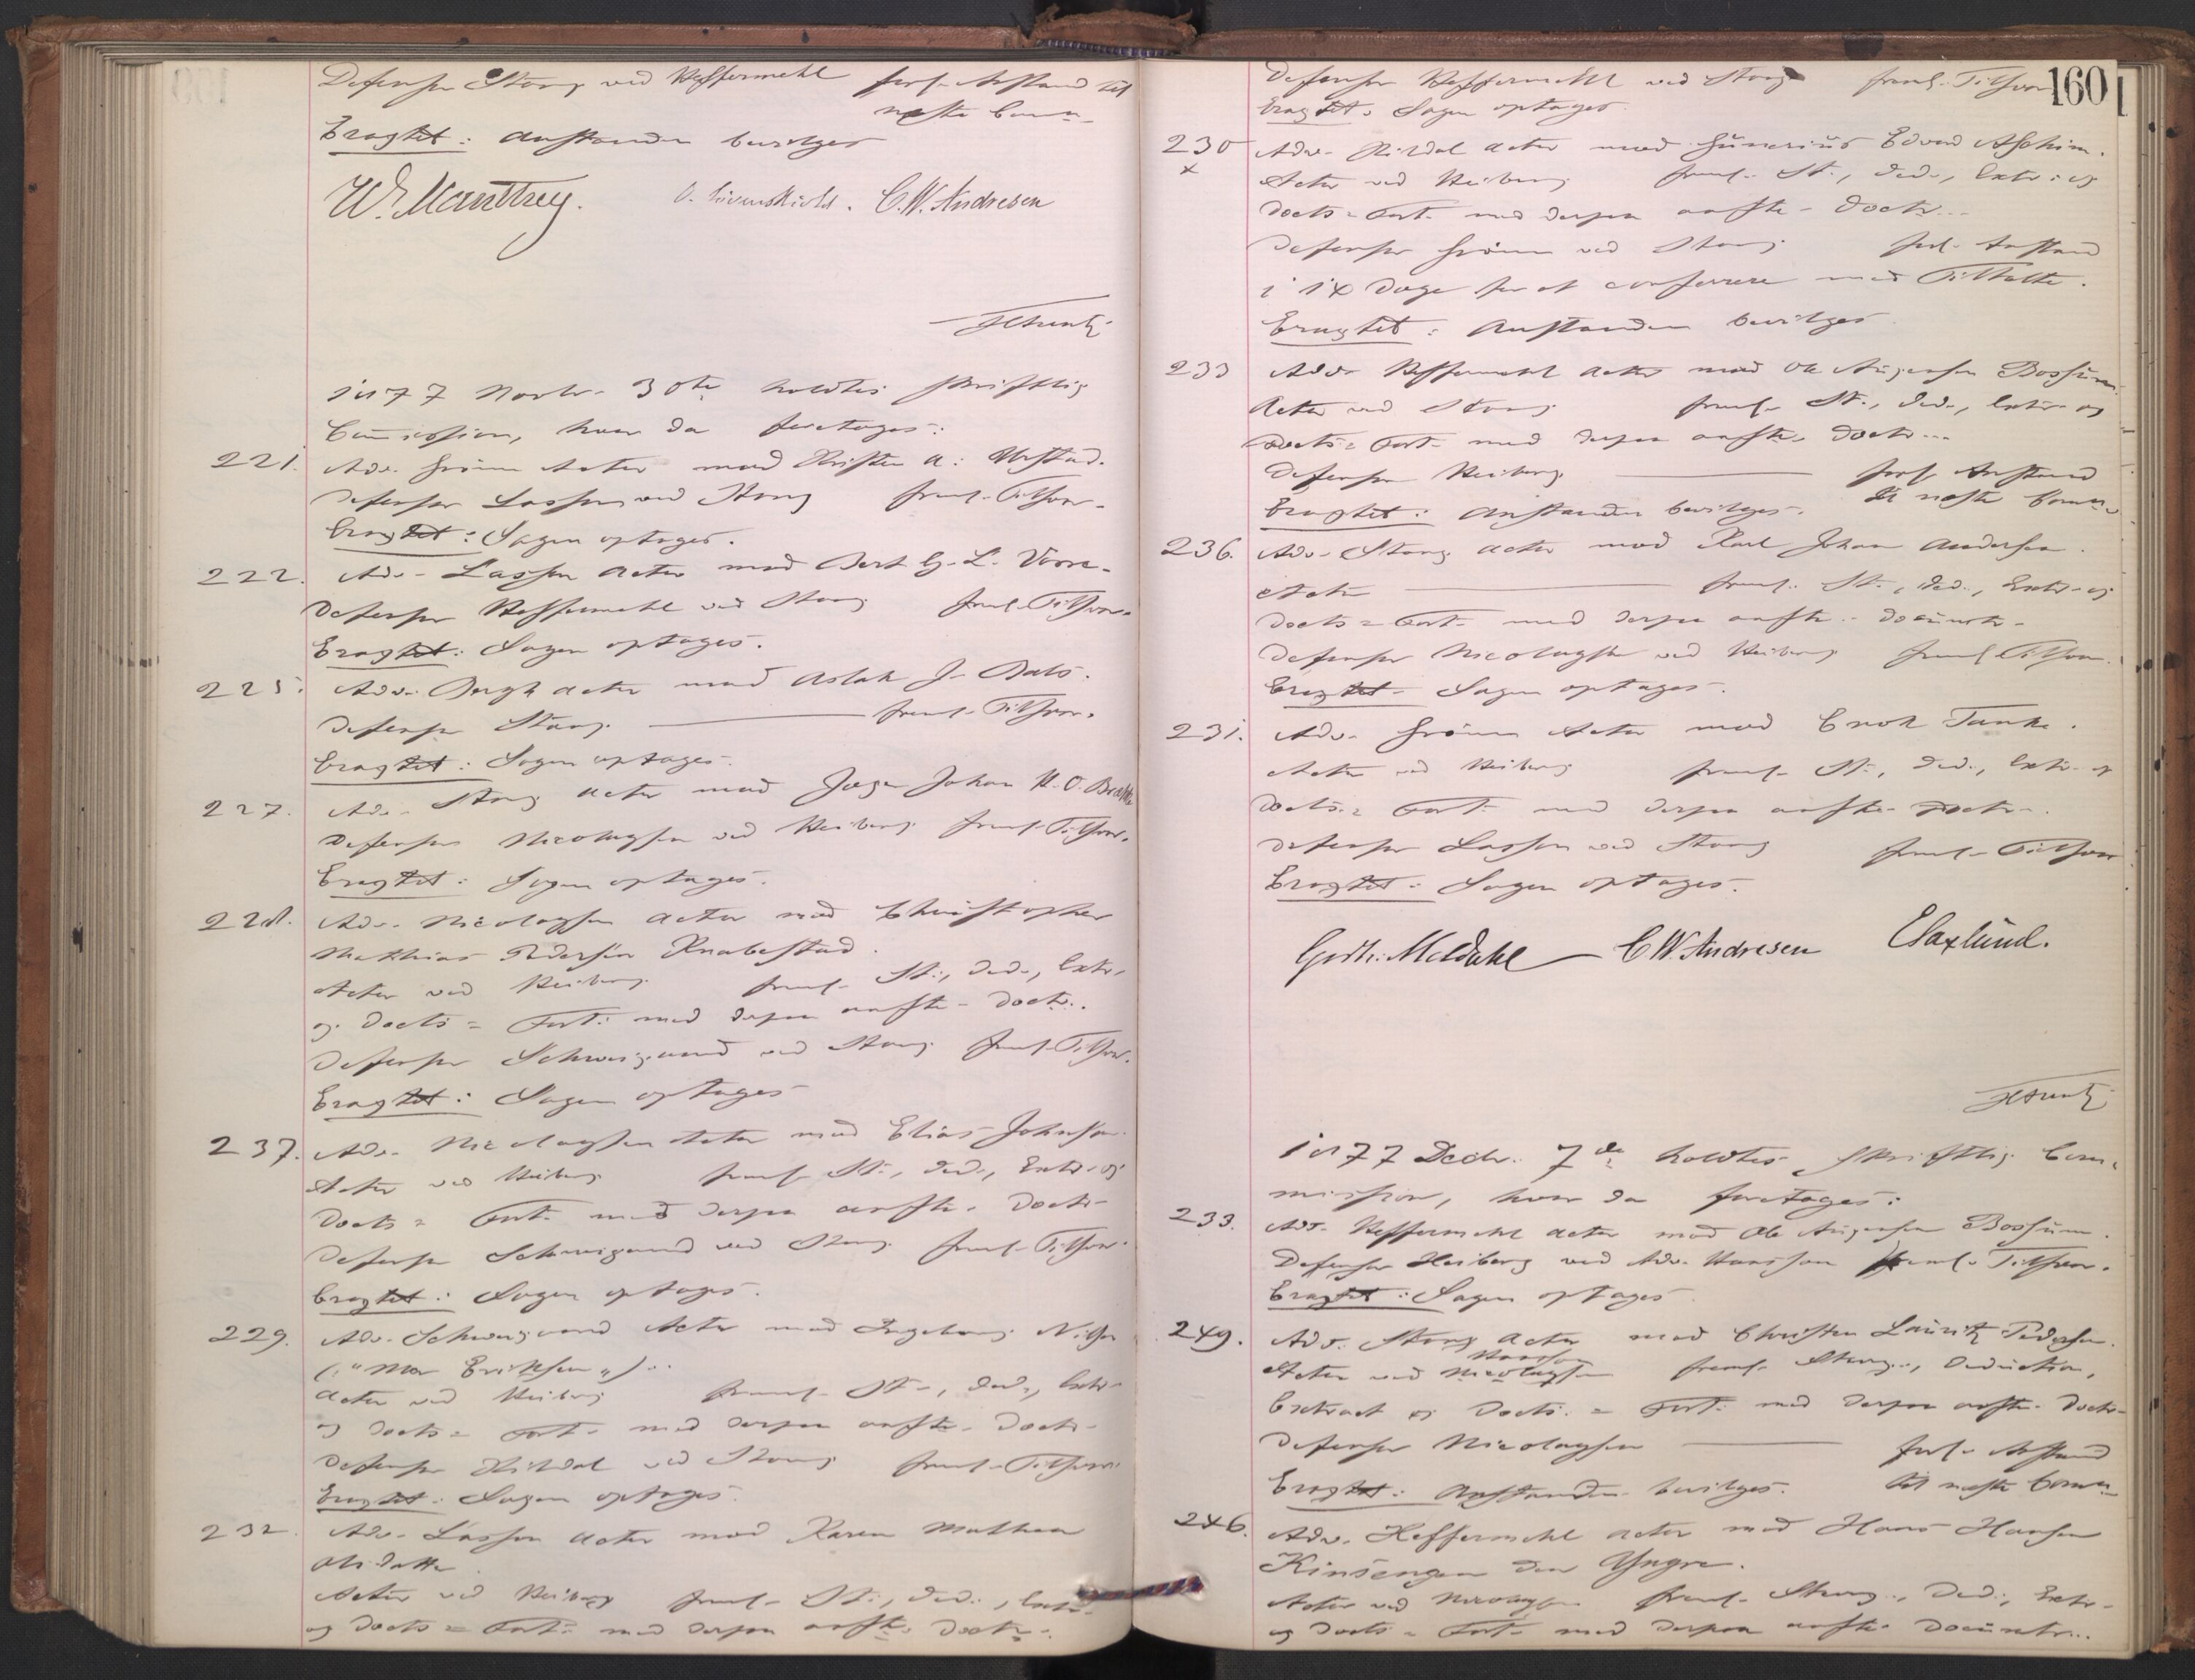 Defensor Stang ved Heffermehl forl. Anstand til
næste Comm.
Eragtet: Anstanden bevilges
W. Manthey. O. Løvenskiold. C.W. Andresen
1877 Novbr. 30te holdtes skriftlig
Commission, hvor da foretoges:
221. Adv. Grönn Actor mod Kristen A. Ulvestad.
Defensor Lassen ved Stang freml. Tilsvar.
Eragtet: Sagen optages.
222. Adv. Lassen Actor mod Bert G. L. Vorre.
Defensor Heffermehl ved Stang freml. Tilsvar.
Eragtet: Sagen optages.
225. Adv. Bergh Actor mod Aslak J. Dals.
Defensor Stang freml. Tilsvar.
Eragtet: Sagen optages.
227. Adv. Stang Actor mod Jæger Johan H. O.
Defensor Nicolaysen ved Heiberg freml. Tilsvar.
Eragtet: Sagen optages.
228. Adv. Nicolaysen Actor mod Christopher
Mathias Pedersen Knabestad.
Actor ved Heiberg freml. St., Ded., Extr.
og Docts = Fort. med derpaa anførte Doctr..
Defensor Schweigaard ved Stang freml. Tilsvar.
Eragtet: Sagen optages
237. Adv. Nicolaysen Actor mod Elias Johnsen.
Actor ved Heiberg freml. St., Ded., Extr. og
Docts = Fort. med derpaa anførte Doctr.
Defensor Schweigaard ved Stang freml. Tilsvar.
Eragtet: Sagen optages.
229. Adv. Schweigaard Actor mod Ingeborg Nilsen
("Mor Eriksen")..
Actor ved Heiberg freml. St., Ded., Extr.
og Docts = Fort. med derpaa anførte Doctr.
Defensor Kildal ved Stang freml. Tilsvar.
Eragtet: Sagen optages.
232. Adv. Lassen Actor mod Karen Mathea
Olsdatter.
Actor ved Heiberg freml. St., Ded., Extr.
og Docts = Fort. med derpaa anførte Doctr.
160
Defensor Heffermehl ved Stang freml. Tilsvar
Eragtet: Sagen optages.
230 Adv. Kildal Actor mod Gunerius Edvard Asheim.
x Actor ved Heiberg freml. St., Ded., Extr. og
Docts = Fort. med derpaa anførte Doctr...
Defensor Grönn ved Stang forl. Anstand
i 14 Dage for at conferere med Tiltalte.
Eragtet: Anstanden bevilges
233 Adv. Heffermehl Actor mod Ole Augensen Bossum.
Actor ved Stang freml. St., Ded., Extr. og
Docts = Fort. med derpaa anførte Doctr...
Defensor Heiberg forl. Anstand
til næste Comm.
Eragtet: Anstanden bevilges.
236. Adv. Stang Actor mod Karl Johan Andersen.
Actor freml. St., Ded., Extr. og
Docts = Fort. med derpaa anførte Documtr.
Defensor Nicolaysen ved Heiberg freml. Tilsvar.
Eragtet: Sagen optages.
231. Adv. Grönn Actor mod Enok Tanke.
Actor ved Heiberg freml. St., Ded., Extr. og
Docts = Fort. med derpaa anførte Doctr.
Defensor Lassen ved Stang freml. Tilsvar
Eragtet: Sagen optages.
Godtz. Meldahl C.W. Andresen E Saxlund.
1877 Decbr. 7de holdtes skriftlig Com-
mission, hvor da foretoges:
233. Adv. Heffermehl Actor mod Ole Augensen Bossum.
Defensor Heiberg ved Adv. Hansson freml. Tilsvar.
Eragtet: Sagen optages
249. Adv. Stang Actor mod Christen Lauritz Pedersen.
Hansson
Actor ved Nicolaysen freml. Stevng., Deduction,
Extract og Docts = Fort. med derpaa anførte Doctr.
Defensor Nicolaysen forl. Anstand
Eragtet: Anstanden bevilges. til næste Comm.
246. Adv. Heffermehl Actor mod Hans Hansen
Kinsengen den Yngre.
Actor ved Nicolaysen freml. Stevng., Ded., Extr.
og Docts = Fort. med derpaa anførte Documtr...